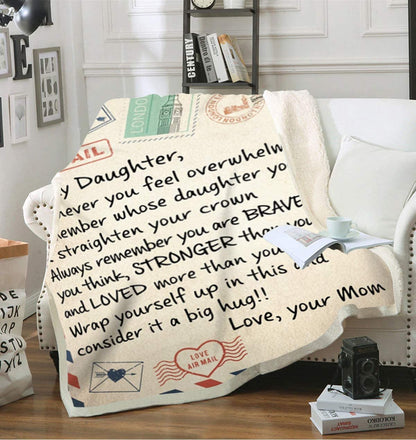 LONDON
AIL
y Daughter,
never you feel overwhelm
ember whose daughter yo
straighten your crown
Always remember you are BRAVE
you think, STRONGER than you
and LOVED more than you
Wrap yourself up in this and
consider it a big hug!!
Love, your Mom
LOVE
AIR MAIL
CENTURY